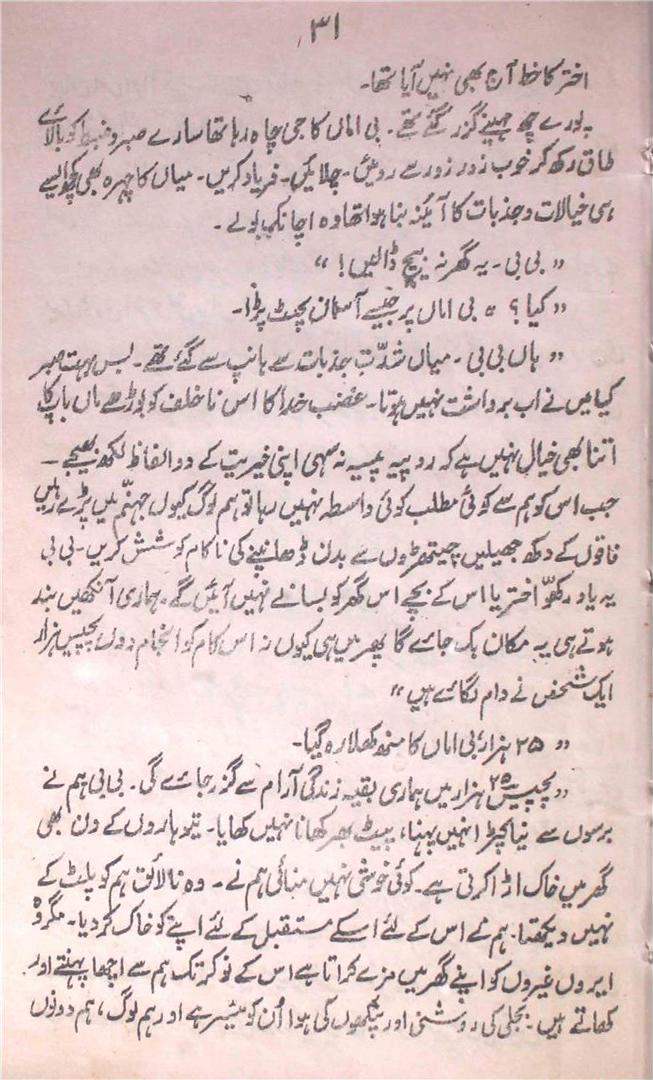 ۳۱
اختر کا خط آج بھی نہیں آیا تھا۔
پورے چھ مہینے گزر گئے تھے۔ بی اماں کا جی چاہ رہا تھا سارے صبر و ضبط کو بالائے
طاق رکھ کر خوب زور زور سے روئیں۔ چلائیں۔ فریاد کریں۔ میاں کا چہرہ بھی کچھ ایسے
ہی خیالات و جذبات کا آئینہ بنا ہوا تھا وہ اچانک بولے۔
" بی بی۔ یہ گھر نہ بیچ ڈالیں! "
" کیا؟ " بی اماں پر جیسے آسمان پھٹ پڑا۔
" ہاں بی بی۔ میاں شدّت جذبات سے ہانپ سے گئے تھے۔ بس بہت صبر
کیا میں نے اب برداشت نہیں ہوتا۔ غضب خدا کا اس ناخلف کو بوڑھے ماں باپ کا
اتنا بھی خیال نہیں ہے کہ روپیہ پیسہ نہ سہی اپنی خیریت کے دو الفاظ لکھ بھیجے۔
جب اس کو ہم سے کوئی مطلب کوئی واسطہ نہیں رہا تو ہم لوگ کیوں جہنّم میں پڑے رہیں
فاقوں کے دکھ جھیلیں چیتھڑوں سے بدن ڈھانپنے کی ناکام کوشش کریں۔ بی بی
یہ یاد رکھوّ اختر یا اس کے بچے اس گھر کو بسانے نہیں آئیں گے۔ ہماری آنکھیں بند
ہوتے ہی یہ مکان بک جائے گا پھر میں ہی کیوں نہ اس کام کو انجام دوں پچیس ہزار
ایک شخص نے دام لگائے ہیں "
" ۲۵ ہزار بی اماں کا منھ کھلا رہ گیا۔
" پچیس ۲۵ ہزار میں ہماری بقیہ زندگی آرام سے گزر جائے گی۔ بی بی ہم نے
برسوں سے نیا کپڑا نہیں پہنا، پیٹ بھر کھانا نہیں کھایا۔ تیوہاروں کے دن بھی
گھر میں خاک اڑا کرتی ہے۔ کوئی خوشی نہیں منائی ہم نے۔ وہ نالائق ہم کو پلٹ کے
نہیں دیکھتا۔ ہم نے اس کے لئے اسکے مستقبل کے لئے اپنے کو خاک کر دیا۔ مگر وہ
ایروں غیروں کو اپنے گھر میں مزے کراتا ہے اس کے نوکر تک ہم سے اچھا پہنتے اور
کھاتے ہیں۔ بجلی کی روشنی اور پنکھوں کی ہوا اُن کو میسّر ہے اور ہم لوگ، ہم دونوں